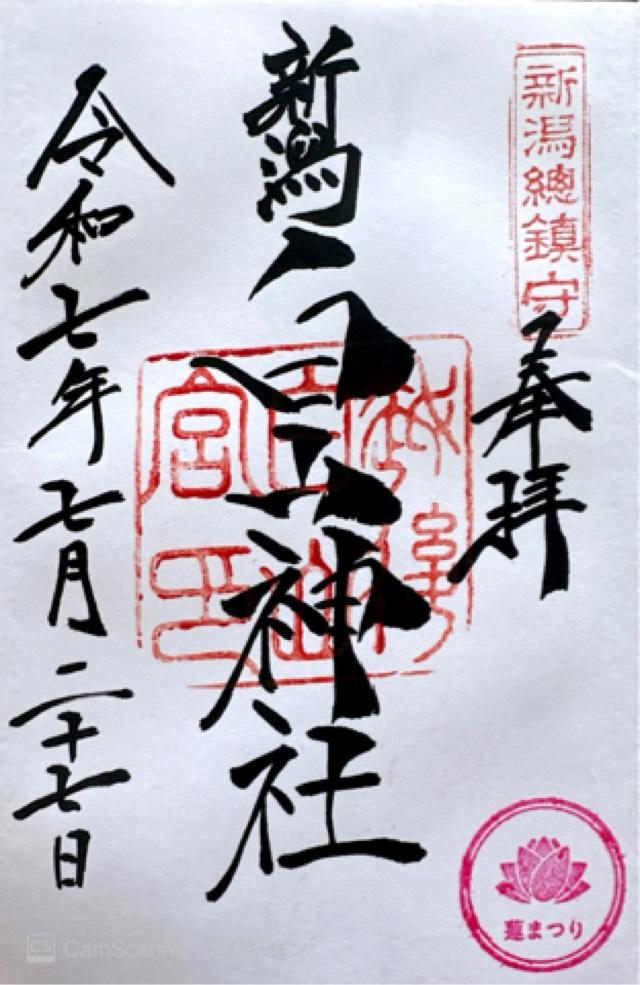 新潟總鎮守
奉拝
新潟白山神社
令和七年七月二十七日
蓮まつり
CS CamScanner